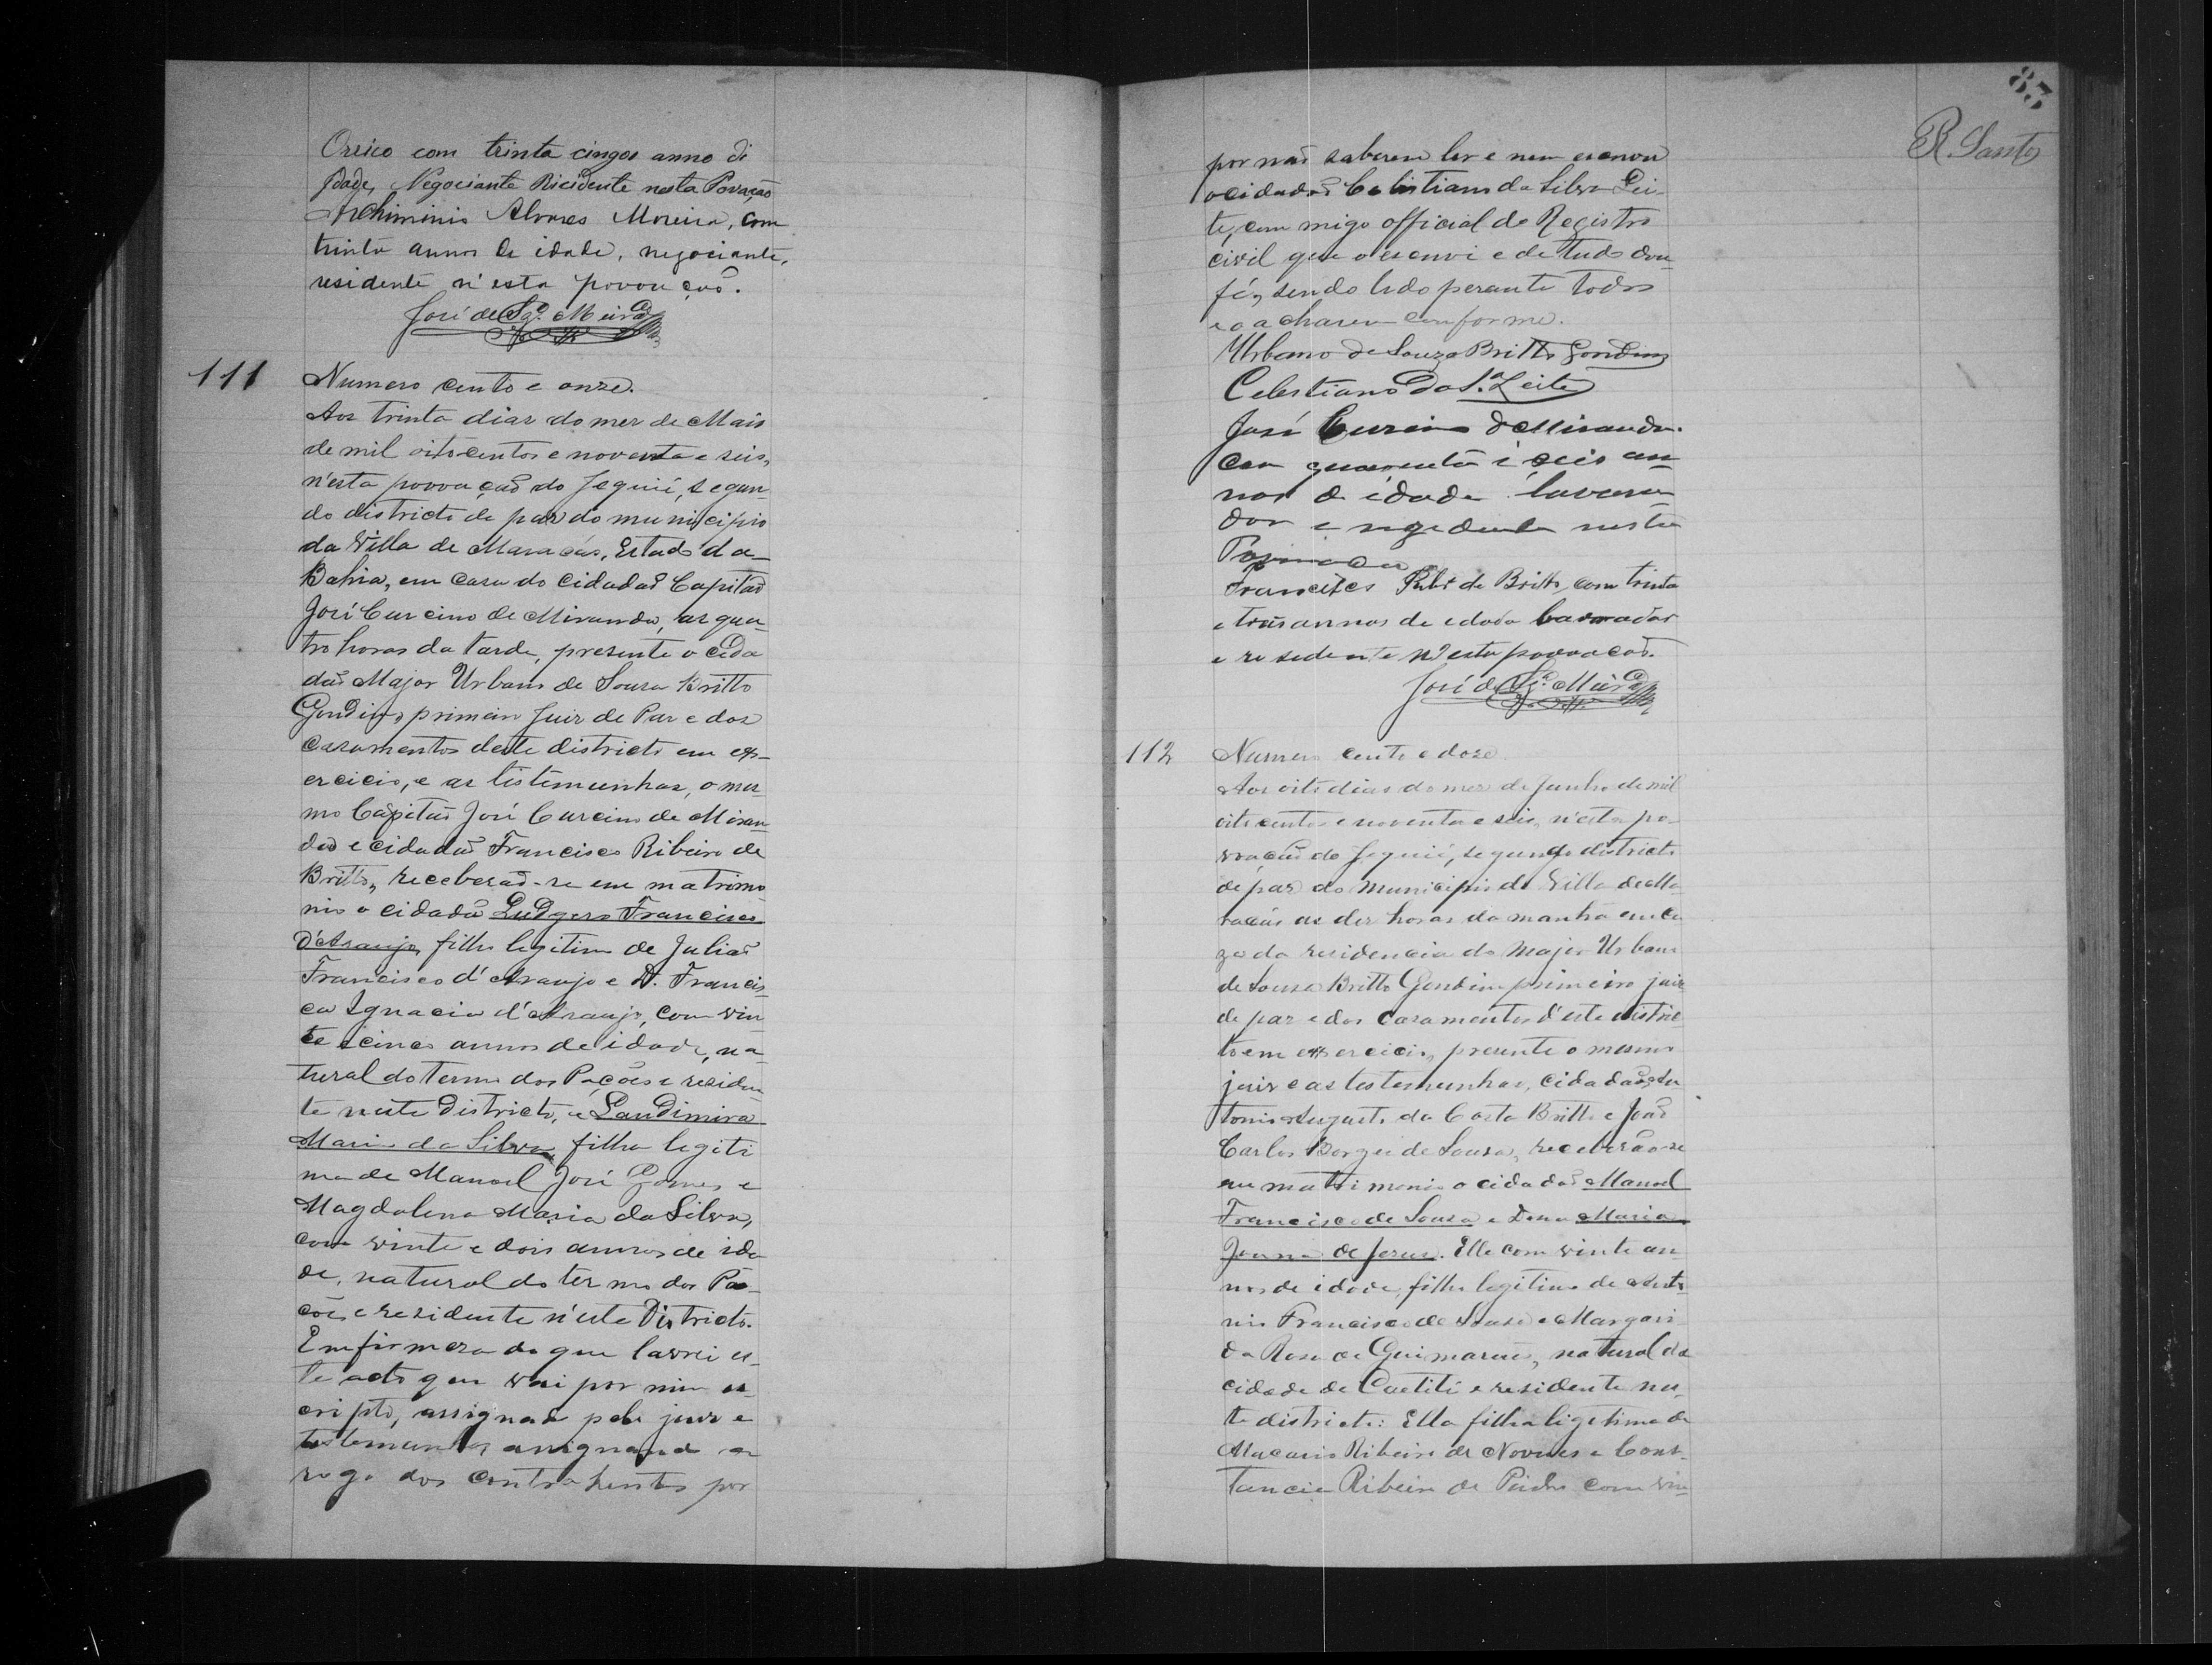 Orrico com trinta cinqoe anno di
Idade, Negociante Ricidente nesta Povoação
Archiminio Alvares Moreira, com
trinta annos de idade, negociante,
residente n'esta povoação.
José de Sz.ª Meira
111
Numero cento e onze.
Aos trinta dias do mez de Maio
de mil oitocentos e noventa e seis,
n'esta povoação do Jequié, segun-
do districto de paz do municipio
da Villa de Maracás, Estado da
Bahia, em casa do Cidadaõ Capitaõ
José Curcino de Miranda, as qua-
tro horas da tarde, presente o cida
daõ Major Urbano de Souza Britto
Gondim, primeiro Juiz de Paz e dos
casamentos deste districto em ex-
ercicio, e as testemunhas, o mes-
mo Capitaõ José Curcino de Miran-
da e cidadaõ Francisco Ribeiro de
Britto, receberaõ-se em matrimo
nio o cidadaõ Ludgero Francisco
d'Araujo, filho legitimo de Juliaõ
Francisco d'Araujo e D. Francis-
ca Ignacia d'Araujo, com vin-
te e cinco annos de idade, na-
tural do Termo dos Poções e residen-
te neste Districto, e Laudimira
Maria da Silva, filha legiti
ma de Manoel José Gomes e
Magdalena Maria da Silva,
com vinte e dois annos de ida
de, natural do termo dos Po-
ções e residente n'este Districto.
Em firmeza do que lavrei es-
te acto que vai por mim es-
cripto, assignado pelo juiz e
testemunhas assignando a
rogo dos contrahentes por
83
R. Santos
por naõ saberem ler e nem escrever
o cidadaõ Celestiano da Silva Lei-
te, com migo official do Registro
civil que o escrevi e de tudo dou
fé, sendo lido perante todos
e o acharem conforme.
Urbano de Souza Britto Gondim
Celestiano da S.ª Leite
José Curcino de Miranda
com quarenta i seis an-
nos de idade lavra-
dor e rezedente nesta
Francisco Rib.º de Britto, com trinta
e tres annos de idade lavrador
e residente n'esta povoação.
José de Sz.ª Meira
112
Numero cento e doze
Aos oito dias do mez de Junho de mil
oitocentos e noventa e seis, n'esta po-
voaçaõ do Jequié, segundo districto
de paz do municipio da Villa de Ma-
racás as dez horas da manhã em ca
za da residencia do Major Urbano
de Souza Britto Gondim primeiro juiz
de paz e dos casamentos d'este distric
to em exercicio, presente o mesmo
juiz e as testemunhas, cidadaõs An
tonio Augusto da Costa Britto e Joaõ
Carlos Borges de Souza, receberão-se
em matrimonio o cidadaõ Manoel
Francisco de Souza e Dona Maria
Joanna de Jesus. Elle com vinte an
nos de idade, filho legitimo de Anto
nio Francisco de Souza e Margari
da Rosa de Guimarães, natural da
cidade de Caetité e residente nes-
te districto: Ella filha legitima de
Macario Ribeiro de Novaes e Cons-
tancia Ribeiro de com vin-